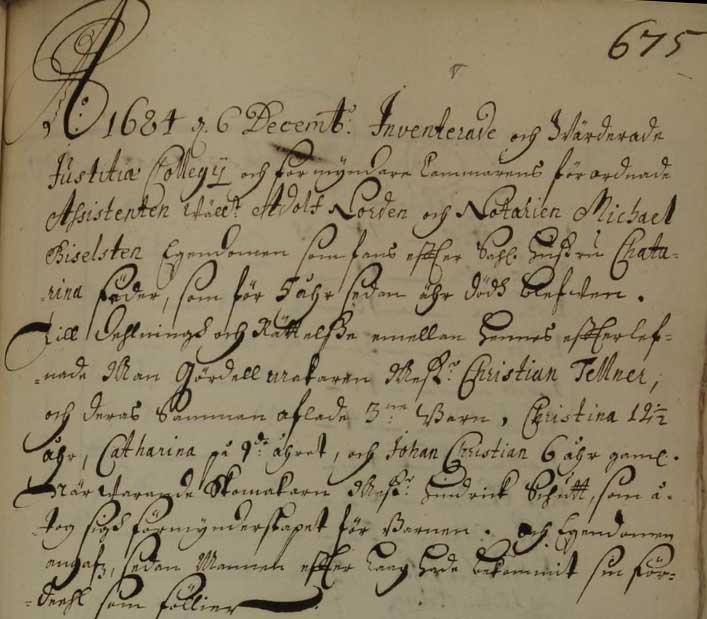 675
Ao: 1684 d. 6 Decemb: Inventerade och Wärderade
Justitiæ Collegij och förmyndare Cammarens för ordnade
Assistenten Wäll:t Adolf Norden och Notarien Michael
Giselsten Egendomen som fans effter Sahl. hustru Chata-
-rina Fäder, som för 5 åhr sedan ähr dödh blefwen.
Till dehlningh och Rättelsse emellan hennes effterlef-
-nade Man Gördellmakaren Mest:r Christian Tellner,
och deras Samman aflade 3:ne Barn, Christina 12½
åhr, Catharina på 9:de åhret, och Johan Christian 6 åhr gaml.
Närwarande Skomakarn Mest:r Hindrick Schütt, som å-
-tog sigh förmynderskapet för Barnen. och Egendomen
angafz, sedan Mannen effter Laag hade bekommit sin för-
-deehl som föllier